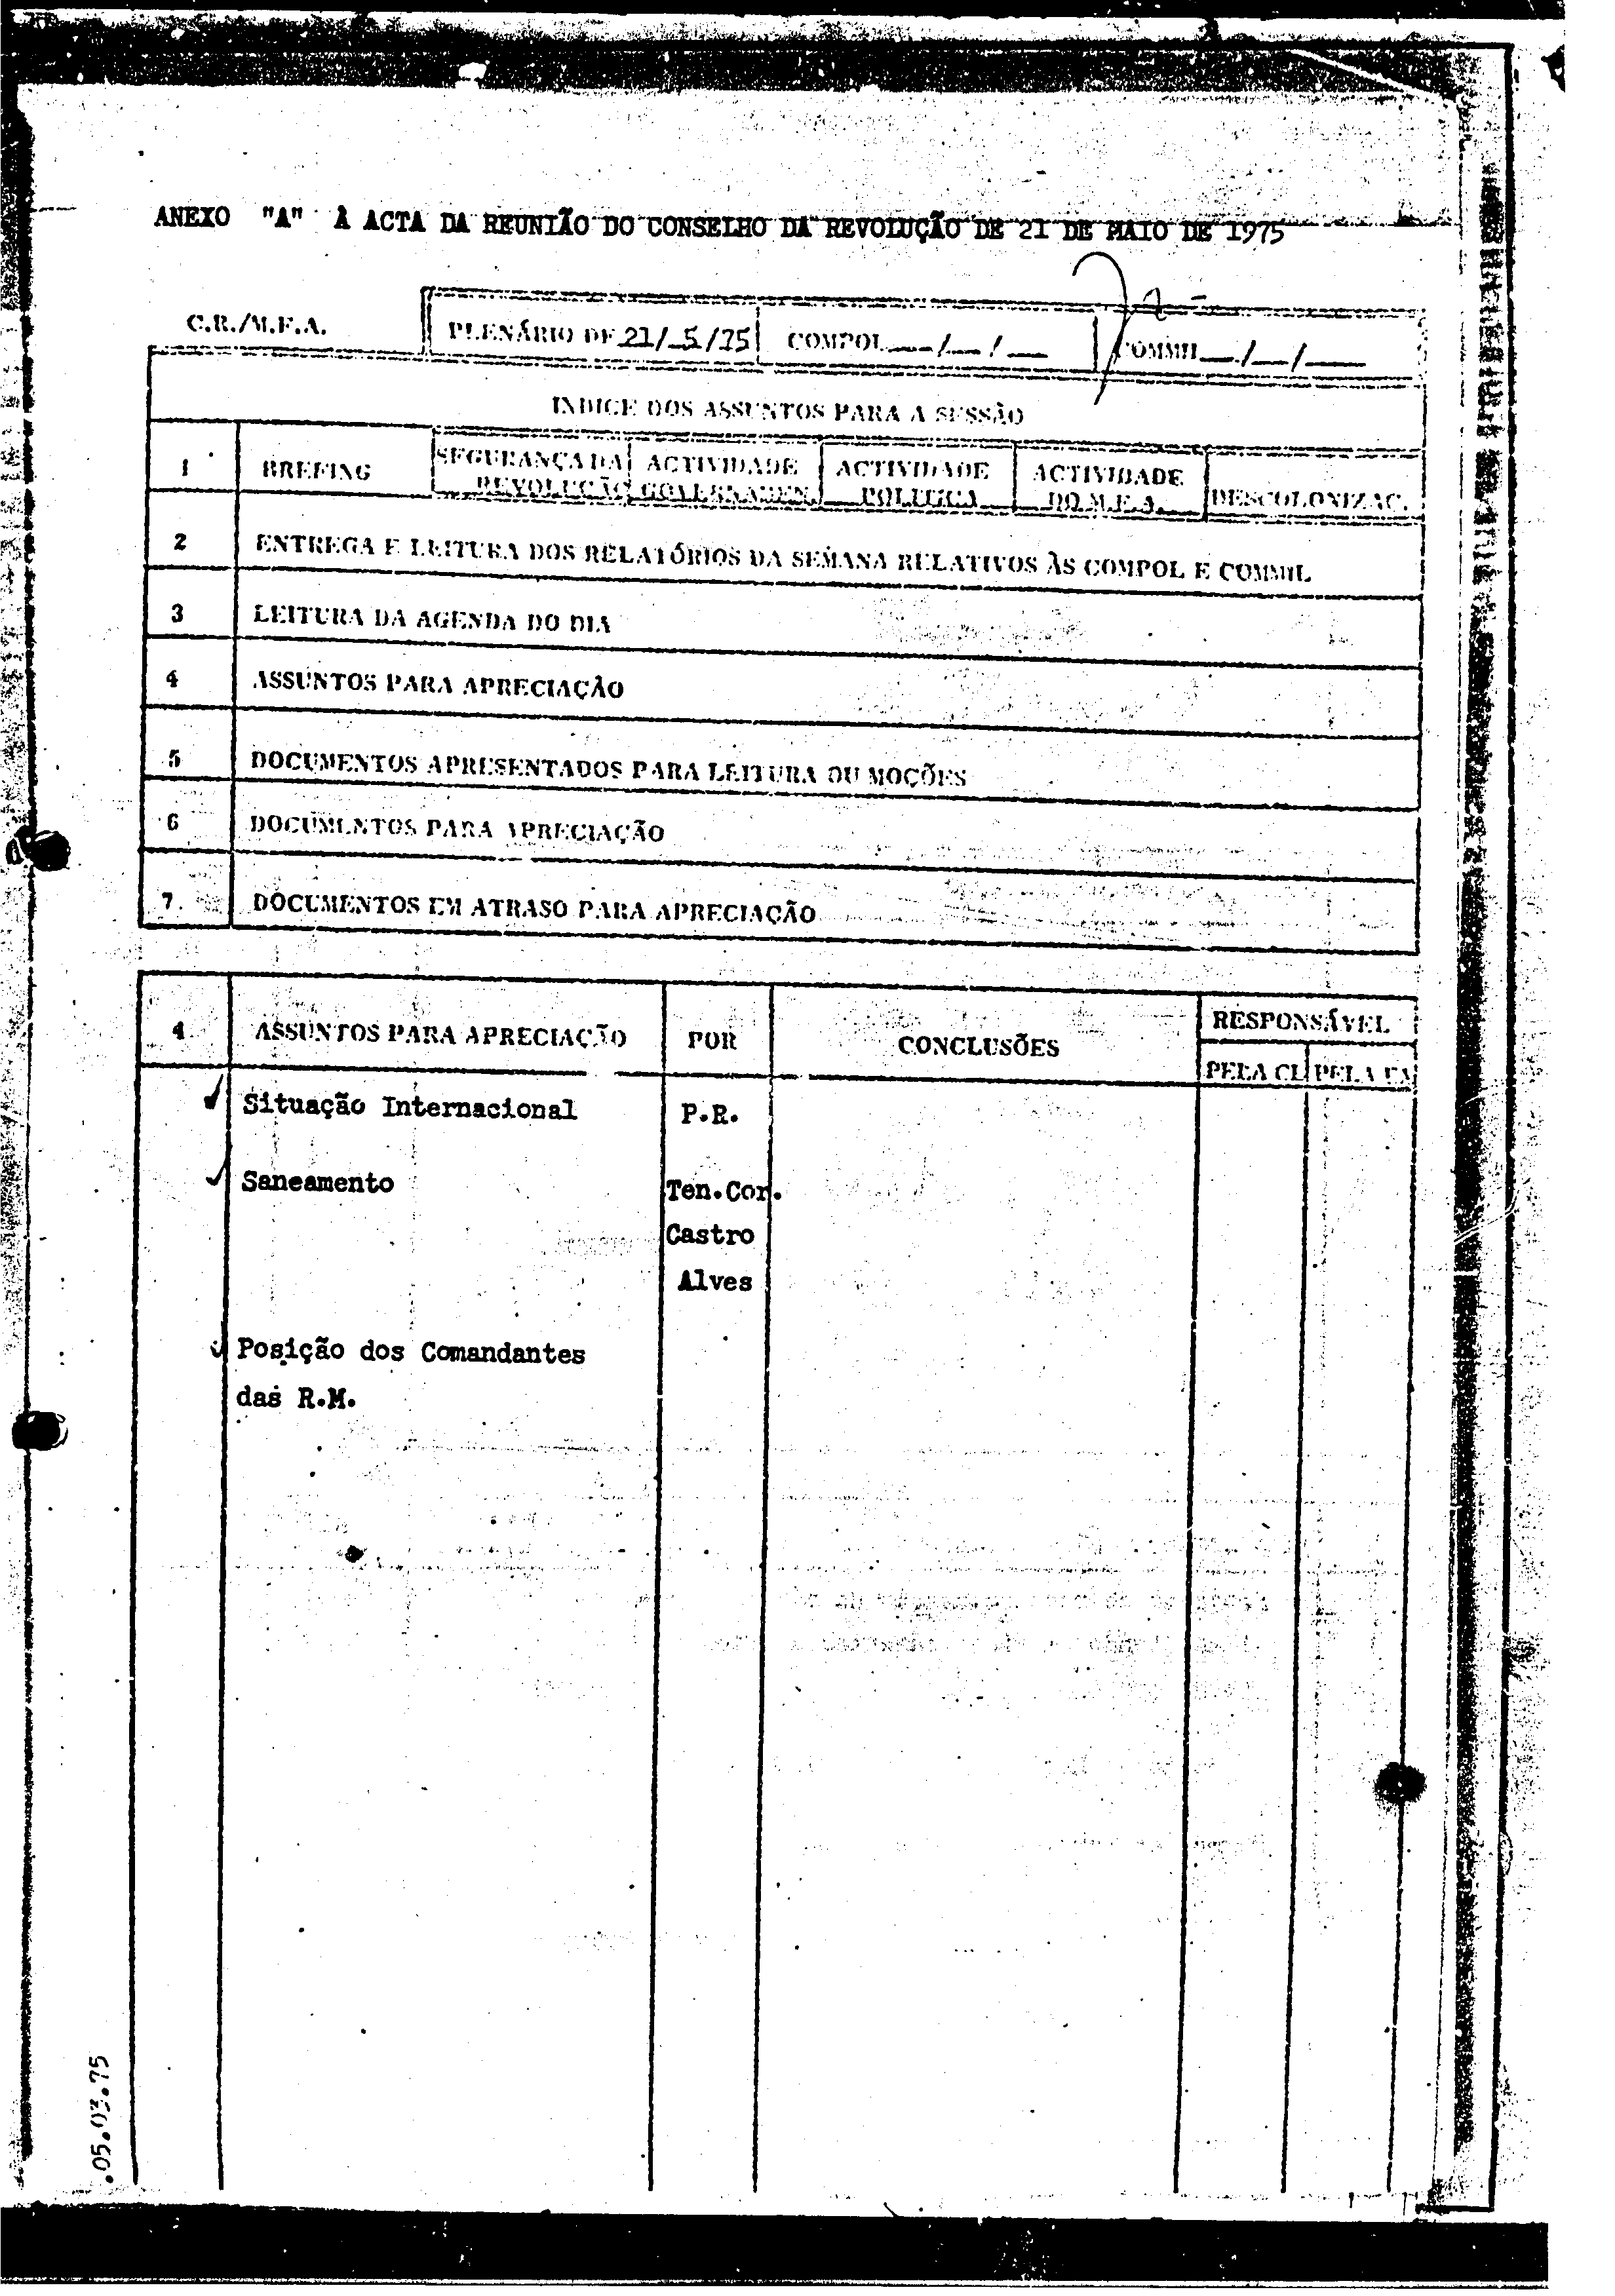 ANEXO "A" À ACTA DA REUNIÃO DO CONSELHO DA REVOLUÇÃO DE 21 DE MAIO DE 1975
C.R./M.F.A. PLENÁRIO DE 21/5/75 COMPOL __/__/__ COMMIL __/__/__
INDICE DOS ASSUNTOS PARA A SESSÃO
1 BREFING SEGURANÇA DA REVOLUÇÃO ACTIVIDADE GOVERNAMEN. ACTIVIDADE POLITICA ACTIVIDADE DO M.F.A. DESCOLONIZAC.
2 ENTREGA E LEITURA DOS RELATÓRIOS DA SEMANA RELATIVOS ÀS COMPOL E COMMIL
3 LEITURA DA AGENDA DO DIA
4 ASSUNTOS PARA APRECIAÇÃO
5 DOCUMENTOS APRESENTADOS PARA LEITURA OU MOÇÕES
6 DOCUMENTOS PARA APRECIAÇÃO
7. DOCUMENTOS EM ATRASO PARA APRECIAÇÃO
4 ASSUNTOS PARA APRECIAÇÃO POR CONCLUSÕES RESPONSÁVEL
PELA CL PELA
Situação Internacional P.R.
Saneamento Ten.Cor.
Castro
Alves
Posição dos Comandantes
das R.M.
.05.03.75